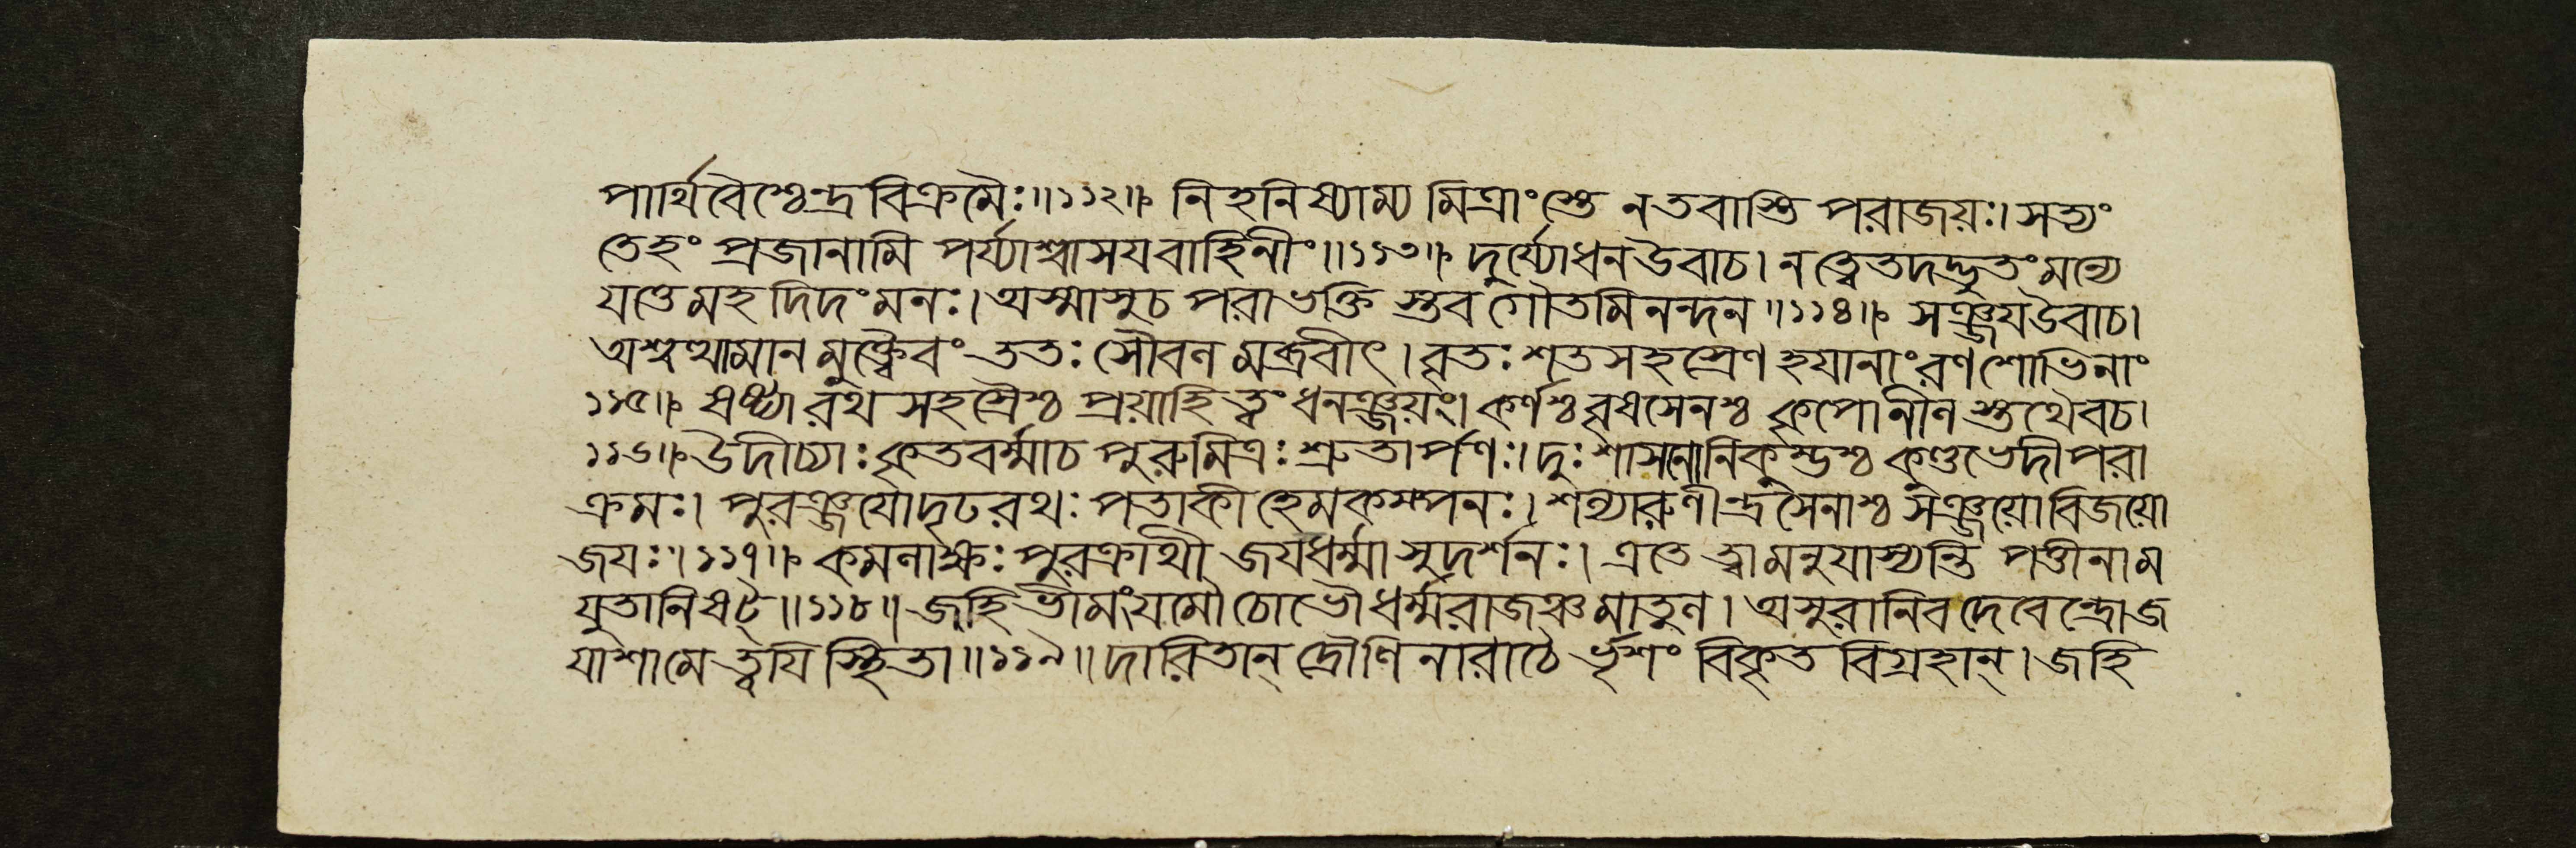 পার্থিবৈশ্চেন্দ্রবিক্রমৈঃ॥১১২॥ নিহনিষ্যাম্য মিত্রাংস্তে নতবাস্তি পরাজয়ঃ। সত্যং
তেহং প্রজানামি পর্য্যাশ্বাসযবাহিনীং॥১১৩॥ দুর্য্যোধনউবাচ। নত্বেতদদ্ভুতংমন্যে
যত্তেমহদিদংমনঃ। অস্মাসুচ পরাভক্তি স্তব গৌতমিনন্দন॥১১৪॥ সঞ্জযউবাচ।
অশ্বত্থামান মুক্ত্বৈবং ততঃ সৌবল মব্রবীৎ। বৃতঃ শতসহস্রেণ হযানাং রণশোভিনাং
১১৫॥ ষষ্ট্যা রথ সহস্রৈশ্চ প্রয়াহি ত্বং ধনঞ্জয়ং। কর্ণশ্চ বৃষসেনশ্চ কৃপোনীল স্তথৈবচ।
১১৬॥ উদীচ্যাঃ কৃতবর্ম্মাচ পুরুমিত্রঃ শ্রুতার্পণঃ। দুঃশাসনোনিকুম্ভশ্চ কুণ্ডভেদীপরা
ক্রমঃ। পুরঞ্জযোদৃঢরথঃ পতাকীহেমকম্পনঃ। শল্যারুণীন্দ্রসেনাশ্চ সঞ্জয়োবিজয়ো
জযঃ।১১৭॥ কমলাক্ষঃ পুরক্রাথী জযধর্ম্মা সুদর্শনঃ। এতে ত্বামনুযাস্যন্তি পত্তীনাম
যুতানিষট্॥১১৮॥ জহি ভীমংযমৌ চোভৌ ধর্ম্মরাজঞ্চমাতুল। অসুরানিব দেবেন্দ্রোজ
যাশামে ত্বযি স্থিতা॥১১৯॥ দারিতান্ দ্রৌণিনারাচৈ র্ভৃশং বিকৃত বিগ্রহান্। জহি